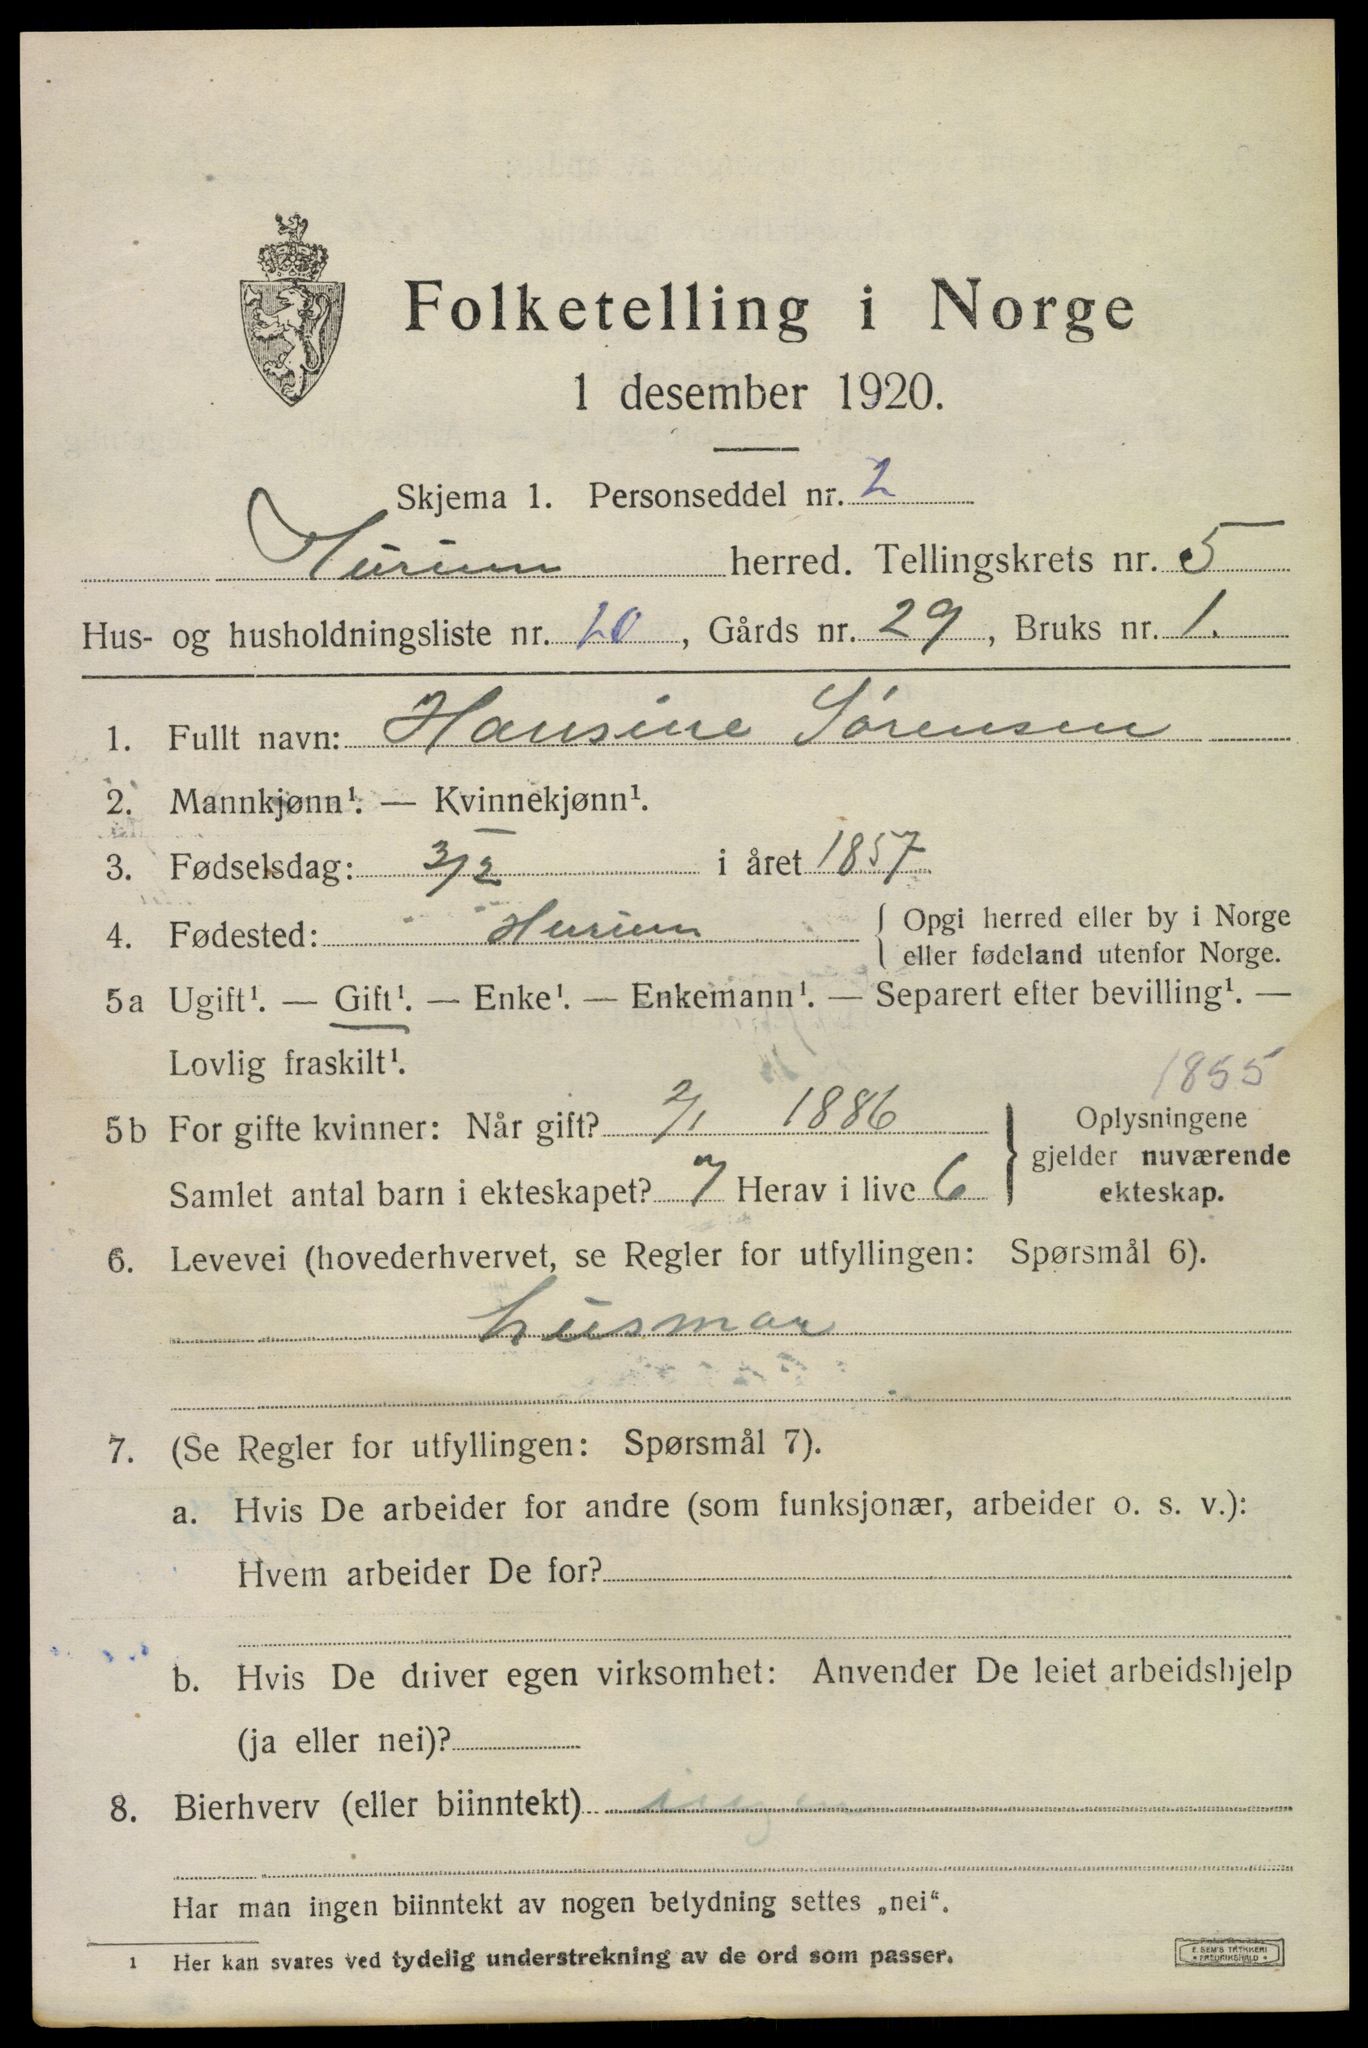 Folketelling i Norge
1 desember 1920.
Skjema 1. Personseddel nr. 2
Hurum herred. Tellingskrets nr. 5
Hus- og husholdningsliste nr. 20, Gårds nr. 29, Bruks nr. 1.
1. Fullt navn: Hansine Sørensen
2. Mannkjønn¹. — Kvinnekjønn¹.
3. Fødselsdag: 3/2 i året 1857
4. Fødested: Hurum { Opgi herred eller by i Norge
eller fødeland utenfor Norge.
5a Ugift¹. — Gift¹. — Enke¹. — Enkemann¹. — Separert efter bevilling¹. —
Lovlig fraskilt¹.
1855
5b For gifte kvinner: Når gift? 2/1 1886 } Oplysningene
gjelder nuværende
Samlet antal barn i ekteskapet? 7 Herav i live 6 ekteskap.
6. Levevei (hovederhvervet, se Regler for utfyllingen: Spørsmål 6).
husmor
7. (Se Regler for utfyllingen: Spørsmål 7).
a. Hvis De arbeider for andre (som funksjonær, arbeider o. s. v.):
Hvem arbeider De for?
b. Hvis De driver egen virksomhet: Anvender De leiet arbeidshjelp
(ja eller nei)?
8. Bierhverv (eller biinntekt) ingen
Har man ingen biinntekt av nogen betydning settes „nei“.
1 Her kan svares ved tydelig understrekning av de ord som passer.
E. SEM'S TRYKKERI
* FREDRIKSHALD *